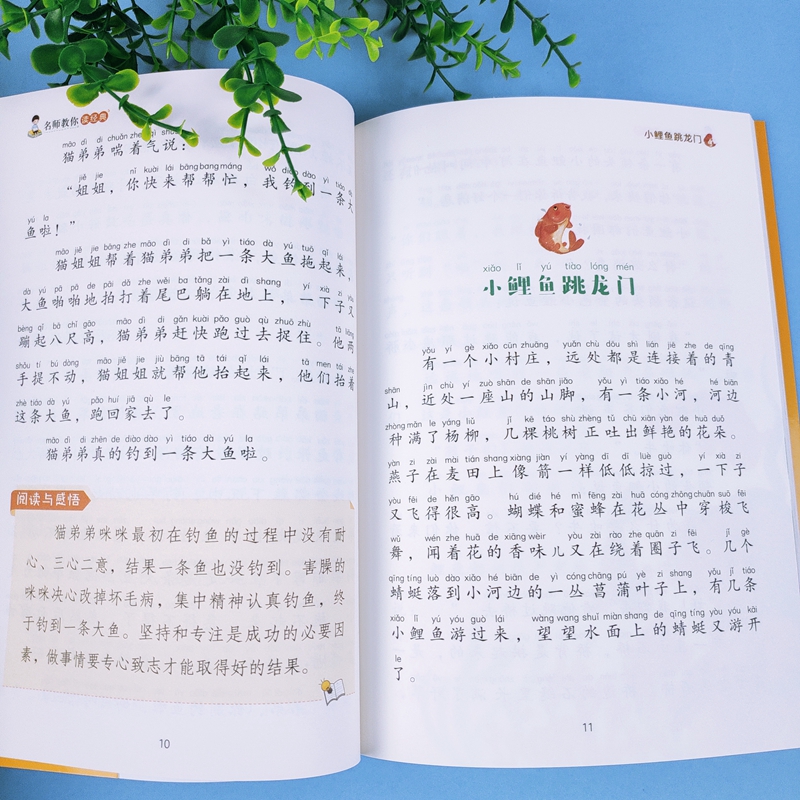 名师教你读经典
māo dì di chuǎn zhe qì shuō
猫弟弟喘着气说：
jiě jie nǐ kuài lái bāng bang máng wǒ diào dào yì tiáo dà
“姐姐，你快来帮帮忙，我钓到一条大
yú la
鱼啦！”
māo jiě jie bāng zhe māo dì di bǎ yì tiáo dà yú tuō qǐ lái
猫姐姐帮着猫弟弟把一条大鱼拖起来，
dà yú pā pā de pāi dǎ zhe wěi ba tǎng zài dì shang yí xià zi yòu
大鱼啪啪地拍打着尾巴躺在地上，一下子又
bèng qǐ bā chǐ gāo māo dì di gǎn kuài pǎo guò qù zhuō zhù tā liǎng
蹦起八尺高，猫弟弟赶快跑过去捉住。他两
shǒu tí bú dòng māo jiě jie jiù bāng tā tái qǐ lái tā men tái zhe
手提不动，猫姐姐就帮他抬起来，他们抬着
zhè tiáo dà yú pǎo huí jiā qù le
这条大鱼，跑回家去了。
māo dì di zhēn de diào dào yì tiáo dà yú la
猫弟弟真的钓到一条大鱼啦。
阅读与感悟
猫弟弟咪咪最初在钓鱼的过程中没有耐
心、三心二意，结果一条鱼也没钓到。害臊的
咪咪决心改掉坏毛病，集中精神认真钓鱼，终
于钓到一条大鱼。坚持和专注是成功的必要因
素，做事情要专心致志才能取得好的结果。
10
小鲤鱼跳龙门
xiǎo lǐ yú tiào lóng mén
小鲤鱼跳龙门
yǒu yí gè xiǎo cūn zhuāng yuǎn chù dōu shì lián jiē zhe de qīng
有一个小村庄，远处都是连接着的青
shān jìn chù yí zuò shān de shān jiǎo yǒu yì tiáo xiǎo hé hé biān
山，近处一座山的山脚，有一条小河，河边
zhòng mǎn le yáng liǔ jǐ kē táo shù zhèng tǔ chū xiān yàn de huā duǒ
种满了杨柳，几棵桃树正吐出鲜艳的花朵。
yàn zi zài mài tián shang xiàng jiàn yí yàng dī dī lüè guò yí xià zi
燕子在麦田上像箭一样低低掠过，一下子
yòu fēi de hěn gāo hú dié hé mì fēng zài huā cóng zhōng chuān suō fēi
又飞得很高。蝴蝶和蜜蜂在花丛中穿梭飞
wǔ wén zhe huā de xiāng wèir yòu zài rào zhe quān zi fēi jǐ gè
舞，闻着花的香味儿又在绕着圈子飞。几个
qīng tíng luò dào xiǎo hé biān de yì cóng chāng pú yè zi shang yǒu jǐ tiáo
蜻蜓落到小河边的一丛菖蒲叶子上，有几条
xiǎo lǐ yú yóu guò lái wàng wang shuǐ miàn shang de qīng tíng yòu yóu kāi
小鲤鱼游过来，望望水面上的蜻蜓又游开
le
了。
11